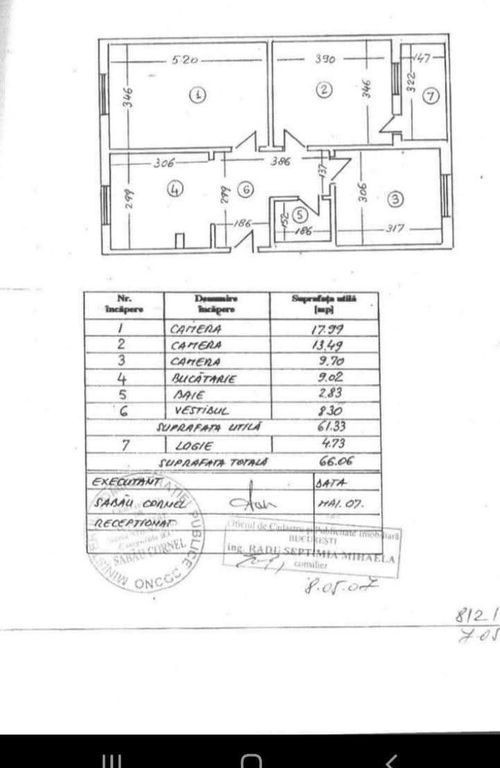 520
390
147
346
1
2
346
322
7
306
386
137
299
4
299
6
306
3
5
152
186
186
317
Nr. încăpere
Denumire încăpere
Suprafața utilă [mp]
1 CAMERA 17.99
2 CAMERA 13.49
3 CAMERA 9.70
4 BUCĂTARIE 9.02
5 BAIE 2.83
6 VESTIBUL 8.30
SUPRAFATA UTILĂ 61.33
7 LOGIE 4.73
SUPRAFATA TOTALĂ 66.06
EXECUTANT DATA
SABĂU CORNEL MAI. 07.
RECEPTIONAT
SABĂU CORNEL
ONCGC
Oficiul de Cadastru și Publicitate Imobiliară
BUCUREȘTI
ing. RADU SEPTIMIA MIHAELA
consilier
8.05.07
812
7 05